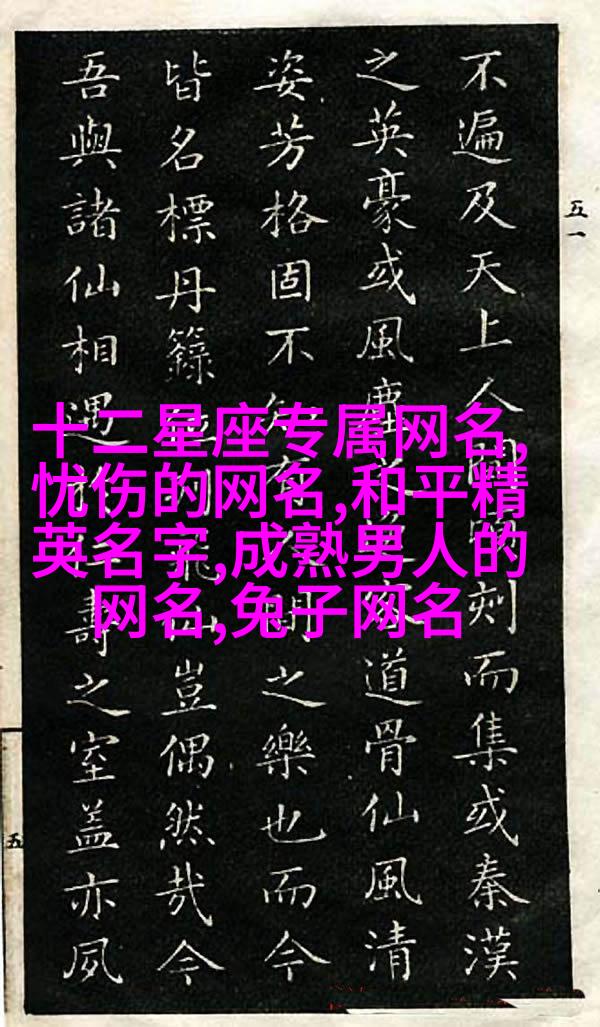 不遍及天上人間刻而集或秦漢
之英豪或風塵之道骨仙風清
姿芳格固不知有之樂也而今
皆名標丹籙列山豈偶然哉今
吾與諸仙相遇於壽之室蓋亦夙
五一
五
十二星座专属网名,
忧伤的网名,和平精
英名字,成熟男人的
网名,兔子网名